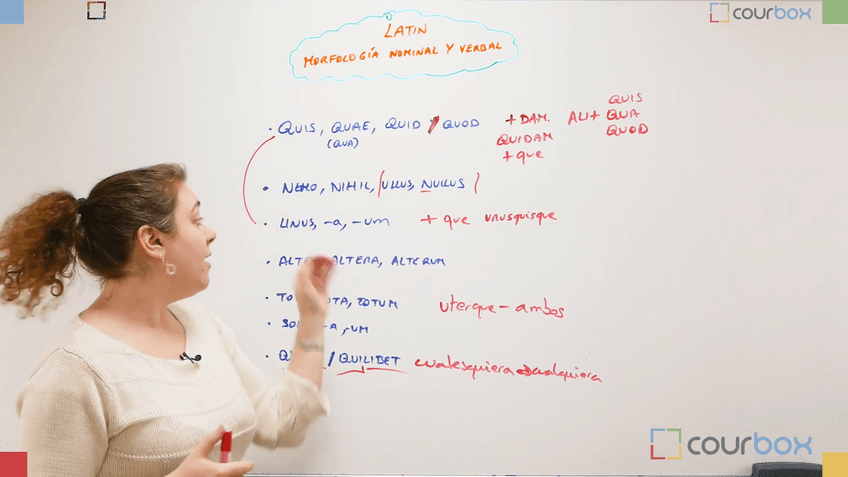 courbox
LATIN
MORFOLOGÍA NOMINAL Y VERBAL
• QUIS, QUAE, QUID / QUOD + DAM. ALI + QUIS
(QUA) QUIDAM QUA
+ que QUOD
• NEMO, NIHIL, (ULLUS, NULLUS)
• UNUS, -a, -um + que unusquisque
• ALTERA, ALTERUM
• TOTUM uterque - ambos
• -A, -UM
• / QUILIBET cualesquiera cualquiera
courbox